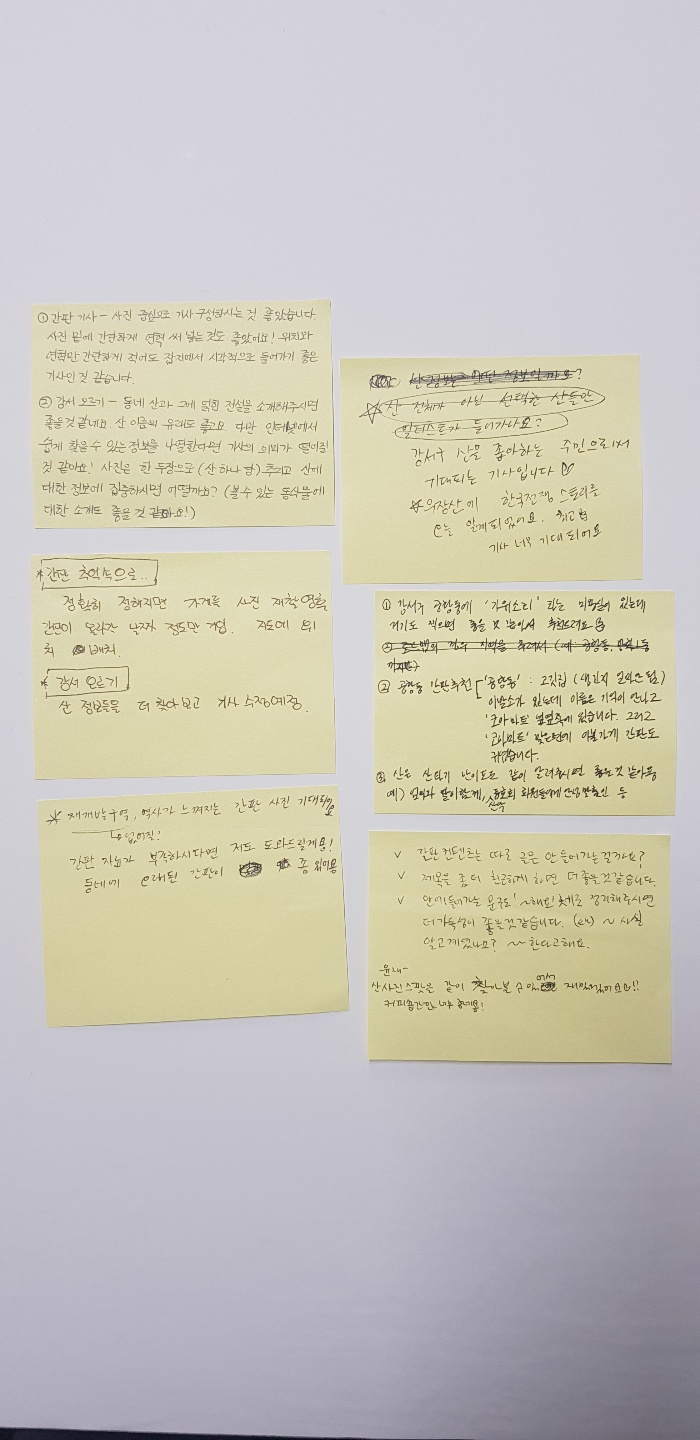 ① 간판 기사 - 사진 중심으로 기사 구성하시는 것 좋았습니다
사진 밑에 간단하게 연혁 써 넣는 것도 좋았어요! 위치와
연혁만 간단하게 적어도 잡지에서 시각적으로 들어가기 좋은
기사인 것 같습니다.
② 강서 오르기 - 동네 산과 그에 얽힌 전설을 소개해주시면
좋을 것 같네요 산 이름의 유래도 좋고요 다만 인터넷에서
쉽게 찾을 수 있는 정보를 나열한다면 기사의 의미가 떨어질
것 같아요! 사진은 한 두장으로 (산 하나 당) 추리고 산에
대한 정보에 집중하시면 어떨까요? (볼 수 있는 동식물에
대한 소개도 좋을 것 같아요!)
☆ 산 전체가 아닌 선택한 산들만
일러스트가 들어가나요?
강서구 산을 좋아하는 주민으로서
기대되는 기사입니다 ♡
☆ 우장산에 한국전쟁 스토리를
알게 되었어요. 최고
기사 너무 기대되어요
* 간판 추억속으로..
정확히 정해지면 가게를 사진 재촬영
간판이 올라간 날짜 정도만 기입. 지도에 위
치 배치.
* 강서 오르기
산 정보들을 더 찾아보고 기사 수정예정.
① 강서구 공항동에 '가위소리' 라는 미용실이 있는데
거기도 찍으면 좋을 것 같아서 추천드려요
② 공항동 간판추천 '공항동' : 고깃집 (생긴지 얼마안됨)
이발소가 있는데 이름은 기억이 안나고
있습니다. 그리고
'코아마트' 맞은편에 이불가게 간판도
귀엽습니다.
③ 산은 산타기 난이도도 같이 알려주시면 좋을 것 같아용
예) 엄마와 딸이 함께, 산악 동호회 회원들에게 안성맞춤인 등
☆ 재개발구역, 역사가 느껴지는 간판 사진 기대되요
없어질!
간판 자료가 부족하시다면 저도 도와드릴게용!
동네에 오래된 간판이 좀 있어용
v 간판 컨텐츠는 따로 글은 안 들어가는걸까요?
v 제목을 좀 더 친근하게 하면 더 좋을것같습니다.
v 안에 들어가는 문구도 '~해요!'체로 정리해주시면
더 가독성이 좋을것같습니다. (ex) ~ 사실
알고계셨나요? ~ 한다고해요.
산 사진 스팟은 같이 찾아볼 수 있어서 재밌겠어요!!